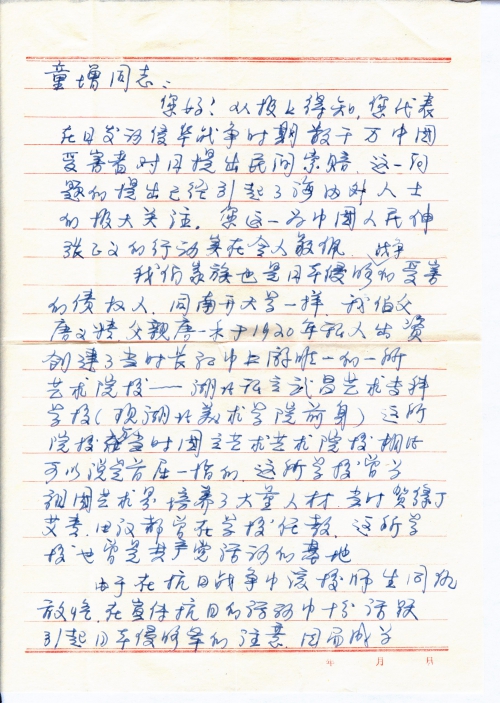 童增同志:
您好!从报上得知,您代表
在日发动侵华战争时期数千万中国
受害者对日提出民间索赔,这一问
题的提出已经引起了海内外人士
的极大关注,您这一为中国人民伸
张正义的行动实在令人敬佩。
我们家族也是日本侵略战争的受害
的债权人,同南开大学一样,我伯父
唐义精、父亲唐一禾于1920年私人出资
创建了当时长江中上游唯一的一所
艺术院校——湖北私立武昌艺术专科
学校(现湖北美术学院前身)这所
院校在当时国立艺术艺术院校相比
可以说是首屈一指的,这所学校曾为
祖国艺术界培养了大量人材,当时贺绿汀
艾青、田汉都曾在学校任教,这所学
校也曾是共产党活动的基地
由于在抗日战争中该校师生同仇
敌忾,在宣传抗日的活动中十分活跃
引起日本侵略军的注意,因而成为
年 月 日